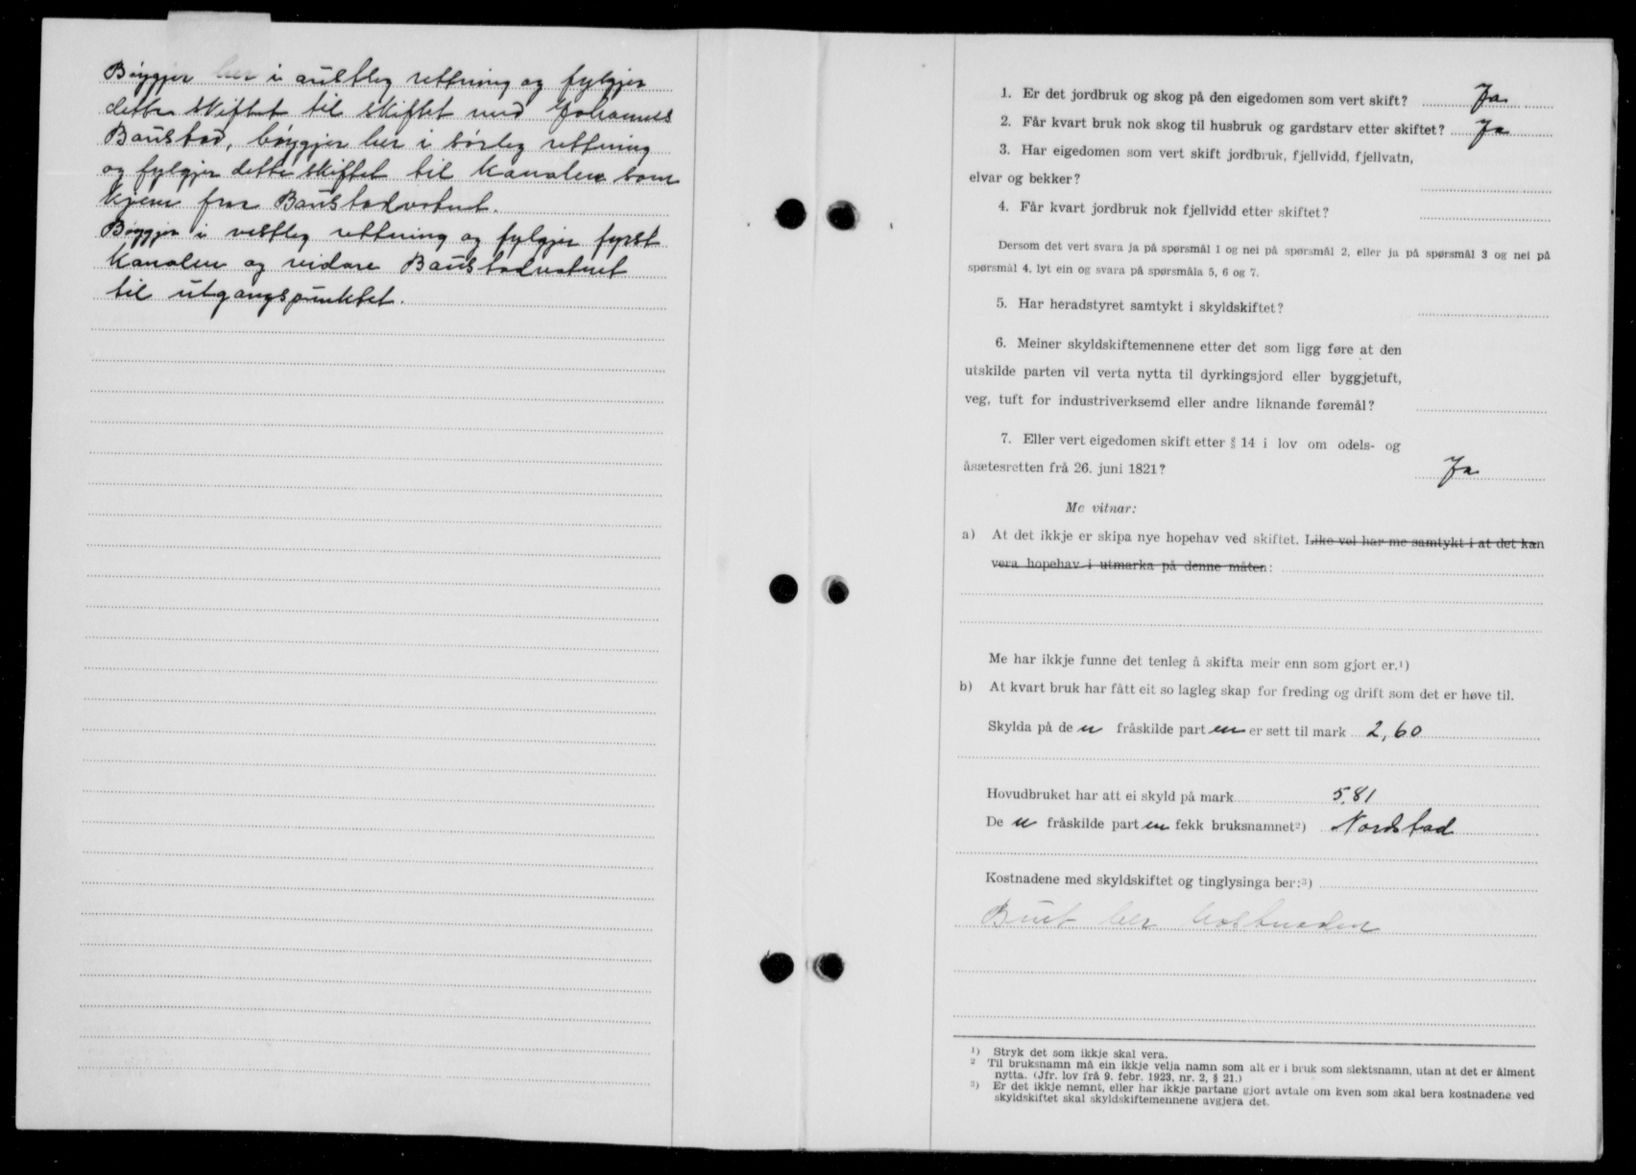 Bøygjer her i austleg rettning og fylgjer
dette skiftet til skiftet med Johannes
Baustad, bøygjer her i sørleg rettning
og fylgjer dette skiftet til kanalen som
kjem fraa Baustadvatnet.
Bøygjer i vestleg rettning og fylgjer fyrst
kanalen og vidare Baustadvatnet
til utgangspunktet.
1. Er det jordbruk og skog på den eigedomen som vert skift? Ja
2. Får kvart bruk nok skog til husbruk og gardstarv etter skiftet? Ja
3. Har eigedomen som vert skift jordbruk, fjellvidd, fjellvatn,
elvar og bekker?
4. Får kvart jordbruk nok fjellvidd etter skiftet?
Dersom det vert svara ja på spørsmål 1 og nei på spørsmål 2, eller ja på spørsmål 3 og nei på
spørsmål 4, lyt ein og svara på spørsmåla 5, 6 og 7.
5. Har heradstyret samtykt i skyldskiftet?
6. Meiner skyldskiftemennene etter det som ligg føre at den
utskilde parten vil verta nytta til dyrkingsjord eller byggjetuft,
veg, tuft for industriverksemd eller andre liknande føremål?
7. Eller vert eigedomen skift etter § 14 i lov om odels- og
åsætesretten frå 26. juni 1821? Ja
Me vitnar:
a) At det ikkje er skipa nye hopehav ved skiftet. Like vel har me samtykt i at det kan
vera hopehav i utmarka på denne måten:
Me har ikkje funne det tenleg å skifta meir enn som gjort er.¹)
b) At kvart bruk har fått eit so lagleg skap for freding og drift som det er høve til.
Skylda på de n fråskilde part en er sett til mark 2,60
Hovudbruket har att ei skyld på mark 5,81
De n fråskilde part en fekk bruksnamnet²) Nordstad
Kostnadene med skyldskiftet og tinglysinga ber:³)
ber kostnaden
¹) Stryk det som ikkje skal vera.
² Til bruksnamn må ein ikkje velja namn som alt er i bruk som slektsnamn, utan at det er ålment
nytta. (Jfr. lov frå 9. febr. 1923, nr. 2, § 21.)
³) Er det ikkje nemnt, eller har ikkje partane gjort avtale om kven som skal bera kostnadene ved
skyldskiftet skal skyldskiftemennene avgjera det.